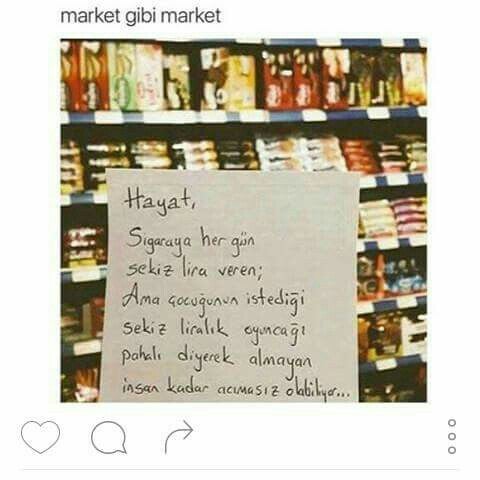 market gibi market
Hayat,
Sigaraya her gün
sekiz lira veren;
Ama çocuğunun istediği
sekiz liralık oyuncağı
pahalı diyerek almayan
insan kadar acımasız olabiliyor...